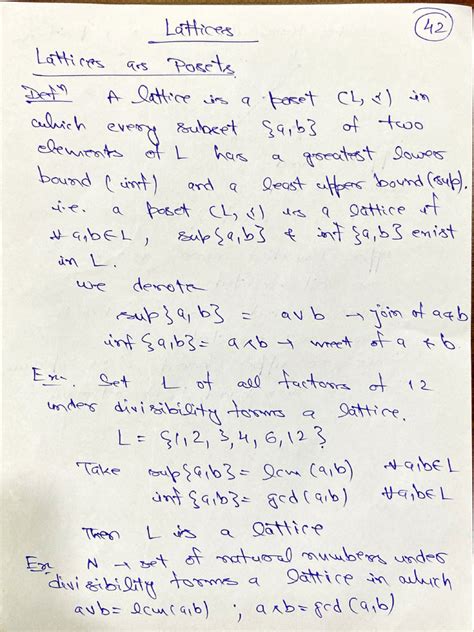 Lattices
42
Lattices as Posets
Defⁿ A lattice is a poset (L, ≤) in
which every subset {a,b} of two
elements of L has a greatest lower
bound (inf) and a least upper bound (sup).
i.e. a poset (L, ≤) is a lattice if
∀ a,b∈L, sup{a,b} & inf{a,b} exist
in L.
We denote
sup{a,b} = a∨b → join of a & b
inf{a,b} = a∧b → meet of a & b
Ex. Set L of all factors of 12
under divisibility forms a lattice.
L = {1,2,3,4,6,12}
Take sup{a,b} = lcm(a,b) ∀a,b∈L
inf{a,b} = gcd(a,b) ∀a,b∈L
Then L is a lattice
Ex. N → set of natural numbers under
divisibility forms a lattice in which
a∨b = lcm(a,b) ; a∧b = gcd(a,b)